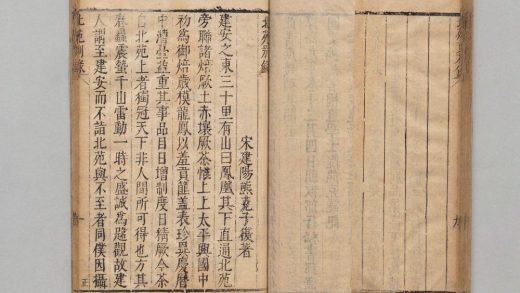 北苑別錄
宋建陽熊克子復著
建安之東三十里有山曰鳳凰其下直通北苑
旁聯諸焙厥土赤壤厥茶惟上上太平興國中
初為御焙歲模龍鳳以羞貢篚蓋表珍異慶曆
中漕臺益重其事品目日增制度日精厥今茶
自北苑上者獨冠天下非人間所可得也方其
春蟲震蟄千山雷動一時之盛誠為觀故建
人謂至建安而不詣北苑與不至者同僕因攝
北苑別錄 一 正